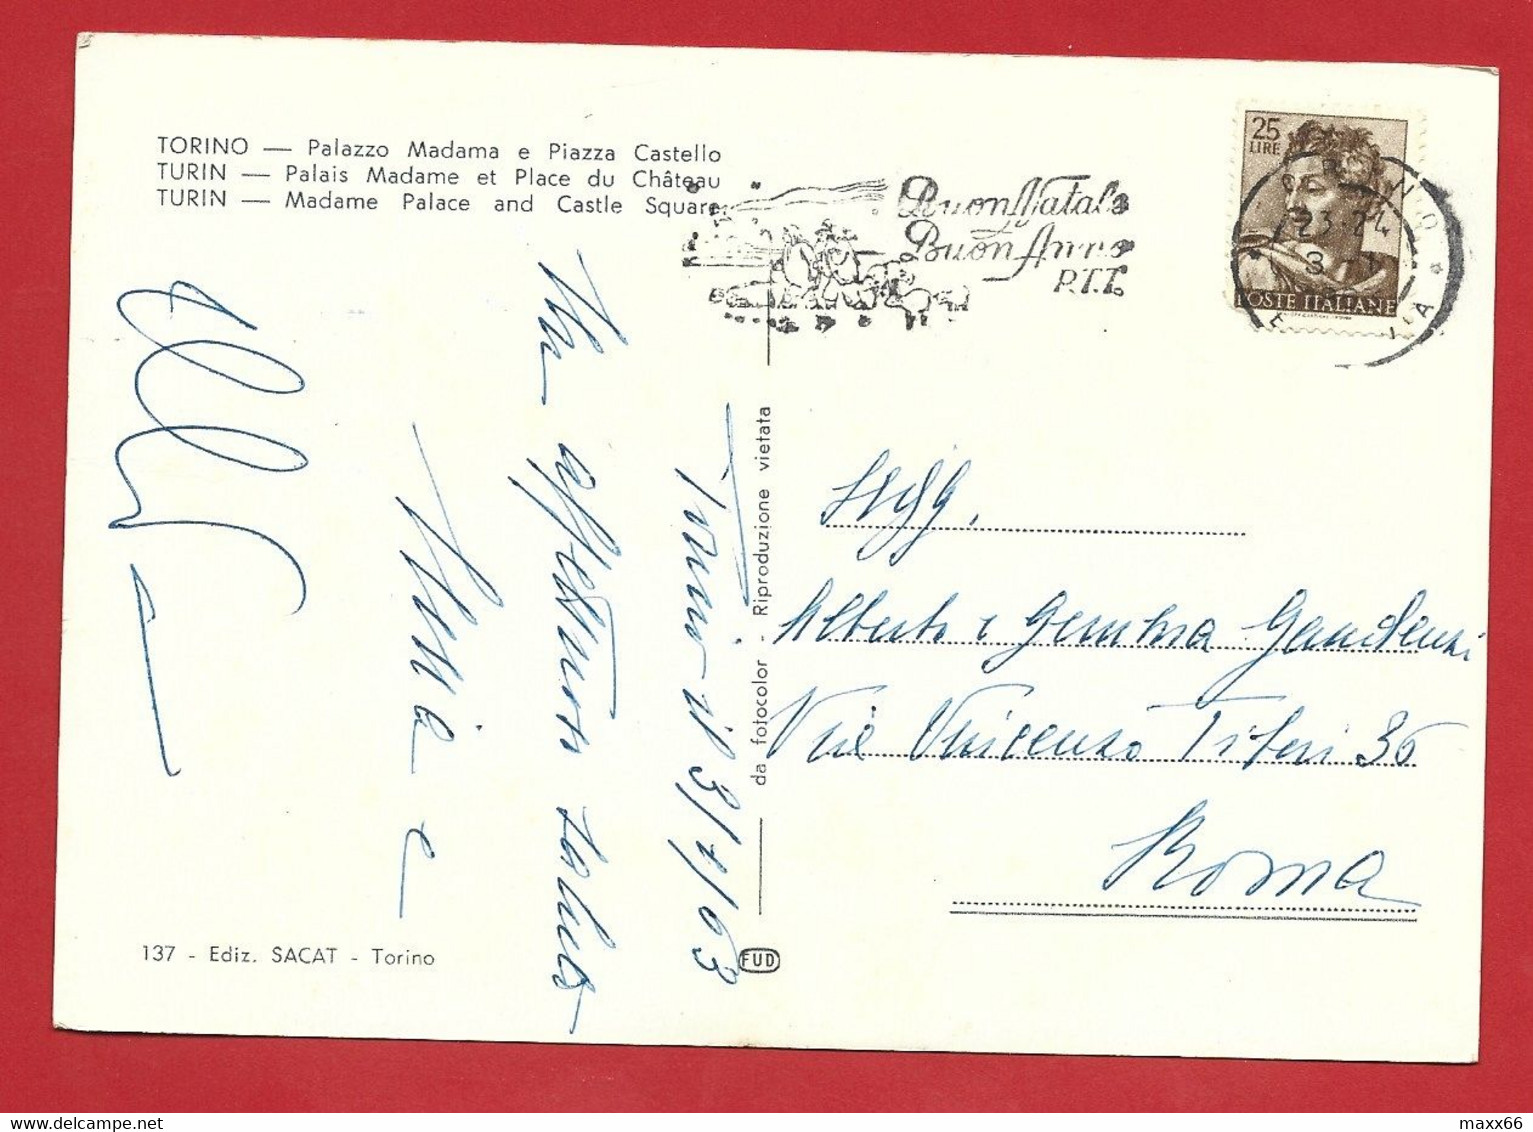 TORINO — Palazzo Madama e Piazza Castello
TURIN — Palais Madame et Place du Château
TURIN — Madame Palace and Castle Square
Buon Natale
Buon Anno
P.T.T.
25
LIRE
POSTE ITALIANE
23-24
3-1
Torino il 3/1/63
Un affettuoso saluto
Anna e
Sigg.
Alberto e Gemma Gaudenzi
Via Vincenzo Tiberi 36
Roma
da fotocolor - Riproduzione vietata
FUD
137 - Ediz. SACAT - Torino
maxx66